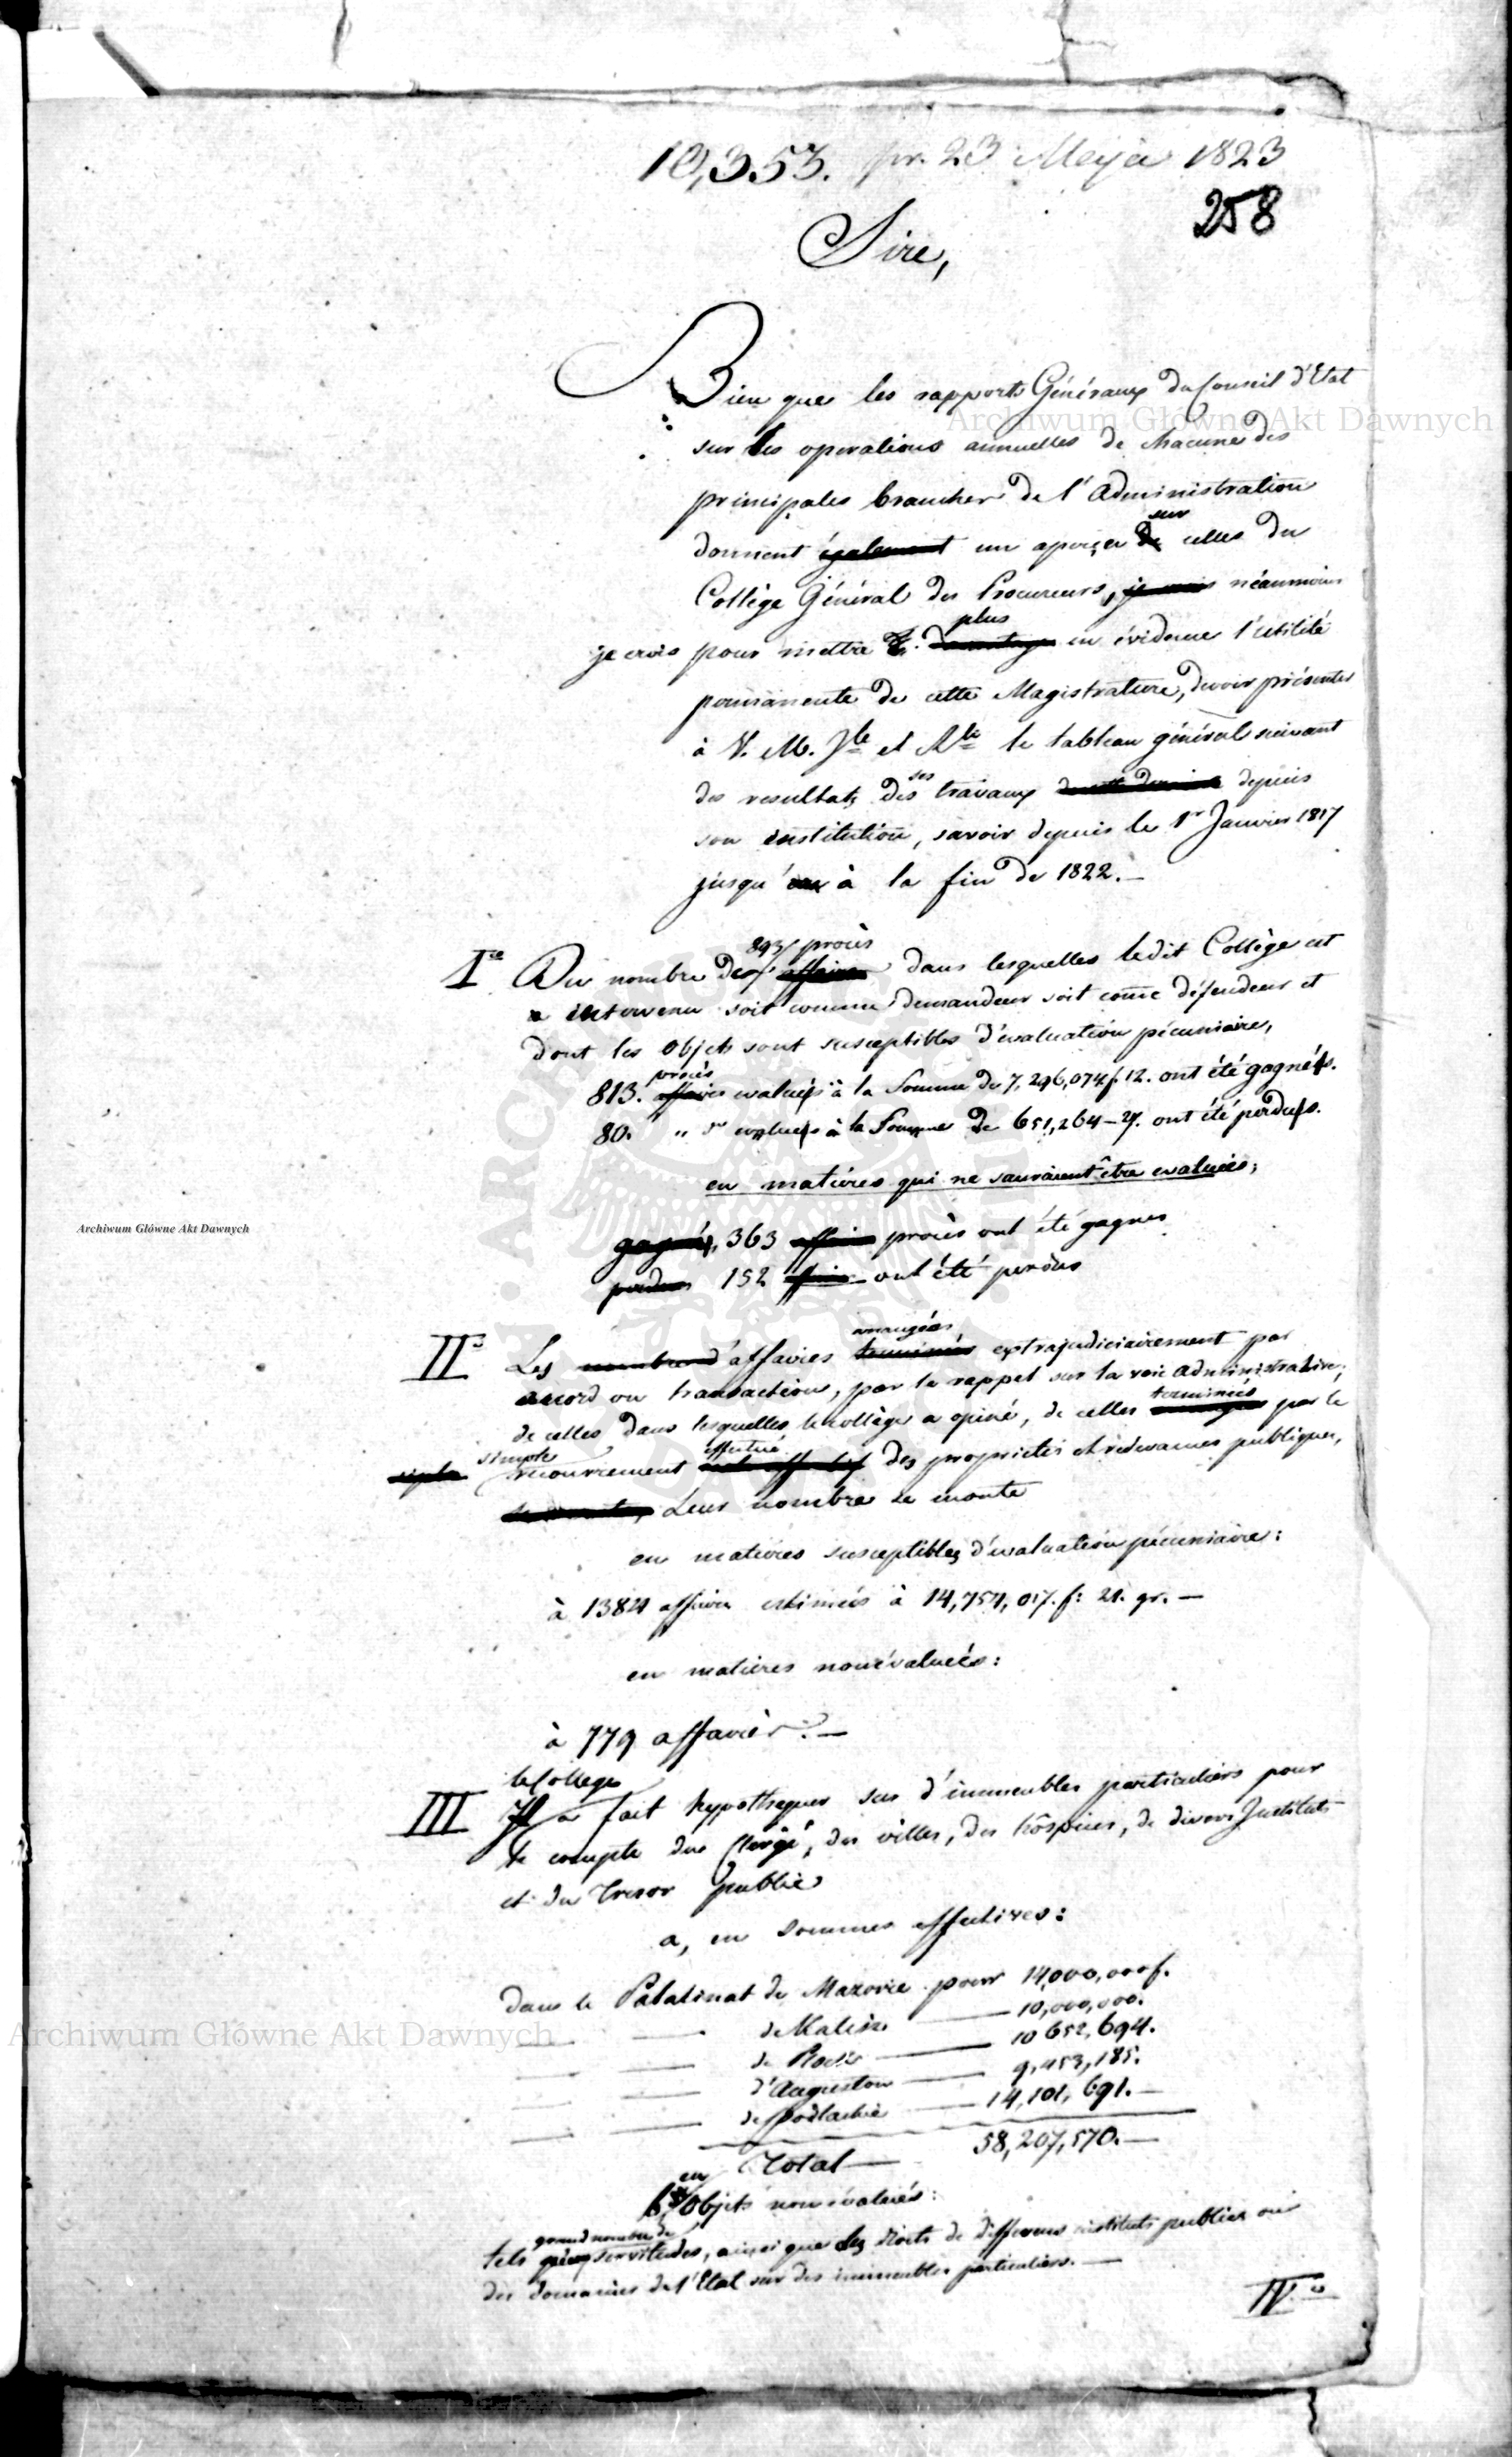 10,353. pr. 23 Meja 1823
258
Sire,
Bien que les rapports Généraux du Conseil d'Etat
sur les operations annuelles de chacune des
principales branches de l'Administration
donnent également un aperçu de sur celles du
Collège Général des Procureurs, néanmoins
je crois pour mettre davantage plus en évidence l'utilité
permanente de cette Magistrature, devoir présenter
à V. M. Jle et Rle le tableau général suivant
des resultats des ses travaux depuis
son institution, savoir depuis le 1r Janvier 1817
jusqu' à la fin de 1822.—
Io Du nombre des 893 procès affaires dans lesquelles ledit Collège est
intervenu soit comme demandeur soit come défendeur et
dont les objets sont susceptibles d'evaluation pécuniaire,
813. affaires procès evalués à la Somme de 7,296,074 f. 12. ont été gagnés.
80. " do evalués à la Somme de 651,264 – 27. ont été perdus.
en matières qui ne sauraient être evaluées;
gagnés, 363 affaires procès ont été gagnes
perdus 152 affaires ont été perdus
IIo Les nombre d'affaires terminées arrangées extrajudiciairement par
accord ou transaction, par le rappel sur la voie administrative;
de celles dans lesquelles le collège a opiné, de celles terminées par le
simple simple recouvrement effectué des proprietés et redevances publiques,
Leur nombre se monte
en matieres susceptibles d'evaluation pécuniaire:
à 1384 affaires estimées à 14,754,017. f: 21. gr. —
en matières nonévaluées:
à 779 affaires. —
III Il le College a fait hypothequer sur d'immeubles particuliers pour
le compte du Clergé, des villes, des hôspices, de divers Instituts
et du Tresor public
a, en sommes effectives:
dans le Palatinat de Mazovie pour 14,000,000 f.
— — de Kalisz — 10,000,000.
— — de Plock — 10 652,694.
— — d'Augustow — 9,453,185.
— — de Podlachie — 14,101,691.—
Total — 58,207,570.—
b, en Objets non évalués:
tels grand nombre de servitudes, ainsi que des droits de differens instituts publics ou
des domaines de l'Etat sur des immeubles particuliers. —
IV.o
Archiwum Główne Akt Dawnych
Archiwum Główne Akt Dawnych
Archiwum Główne Akt Dawnych